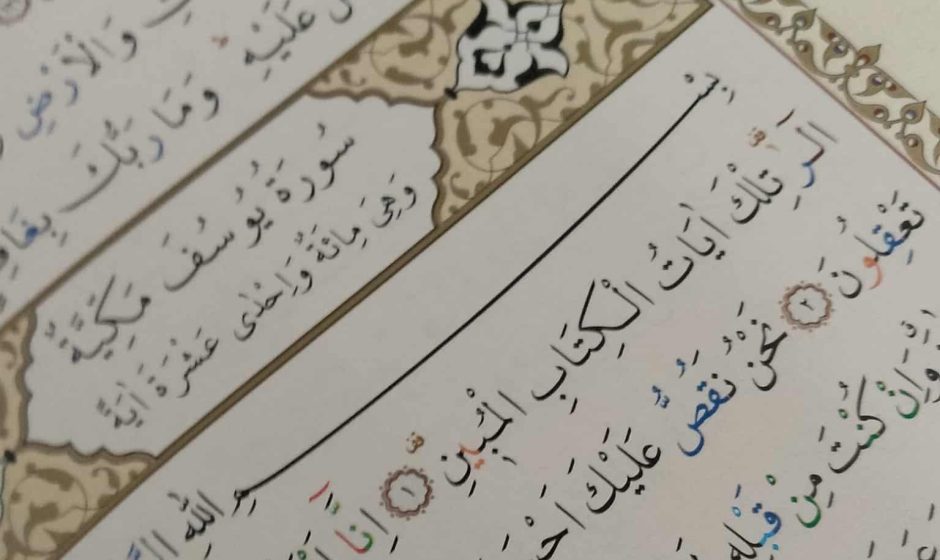 وَالْاَرْضِ
عَلَيْهِ وَمَا رَبُّكَ بِغَافِ
سُورَةُ يُوسُفَ مَكِّيَّةٌ
وَهِيَ مِائَةٌ وَاِحْدٰى عَشْرَةَ اٰيَةً
بِسْمِ اللهِ
الٓرٰ تِلْكَ اٰيَاتُ الْكِتَابِ الْمُبٖينِ ١ اِنَّٓا
تَعْقِلُونَ ٢ نَحْنُ نَقُصُّ عَلَيْكَ اَحْسَ
وَاِنْ كُنْتَ مِنْ قَبْلِهٖ